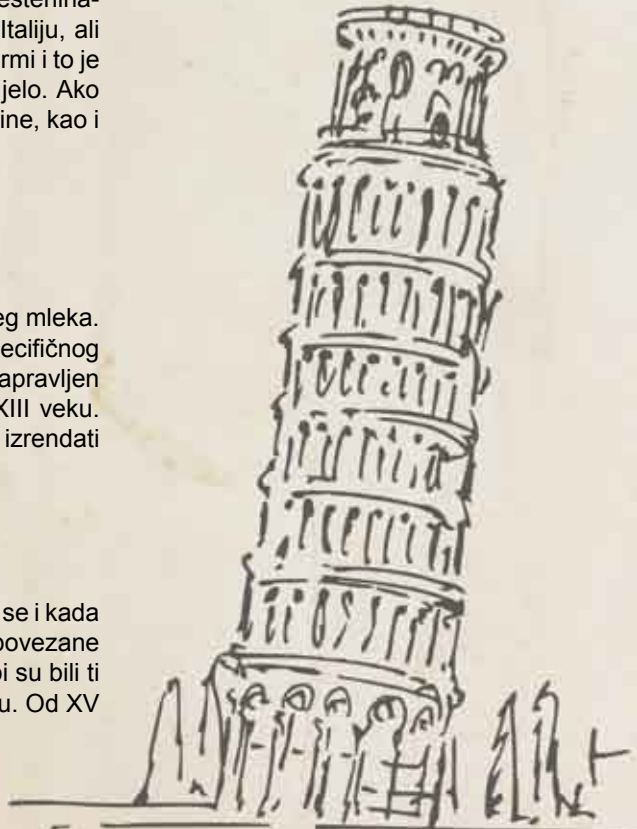 Italiju, ali
rmi i to je
jelo. Ako
ine, kao i
eg mleka.
ecifičnog
apravljen
XIII veku.
izrendati
se i kada
povezane
oi su bili ti
u. Od XV